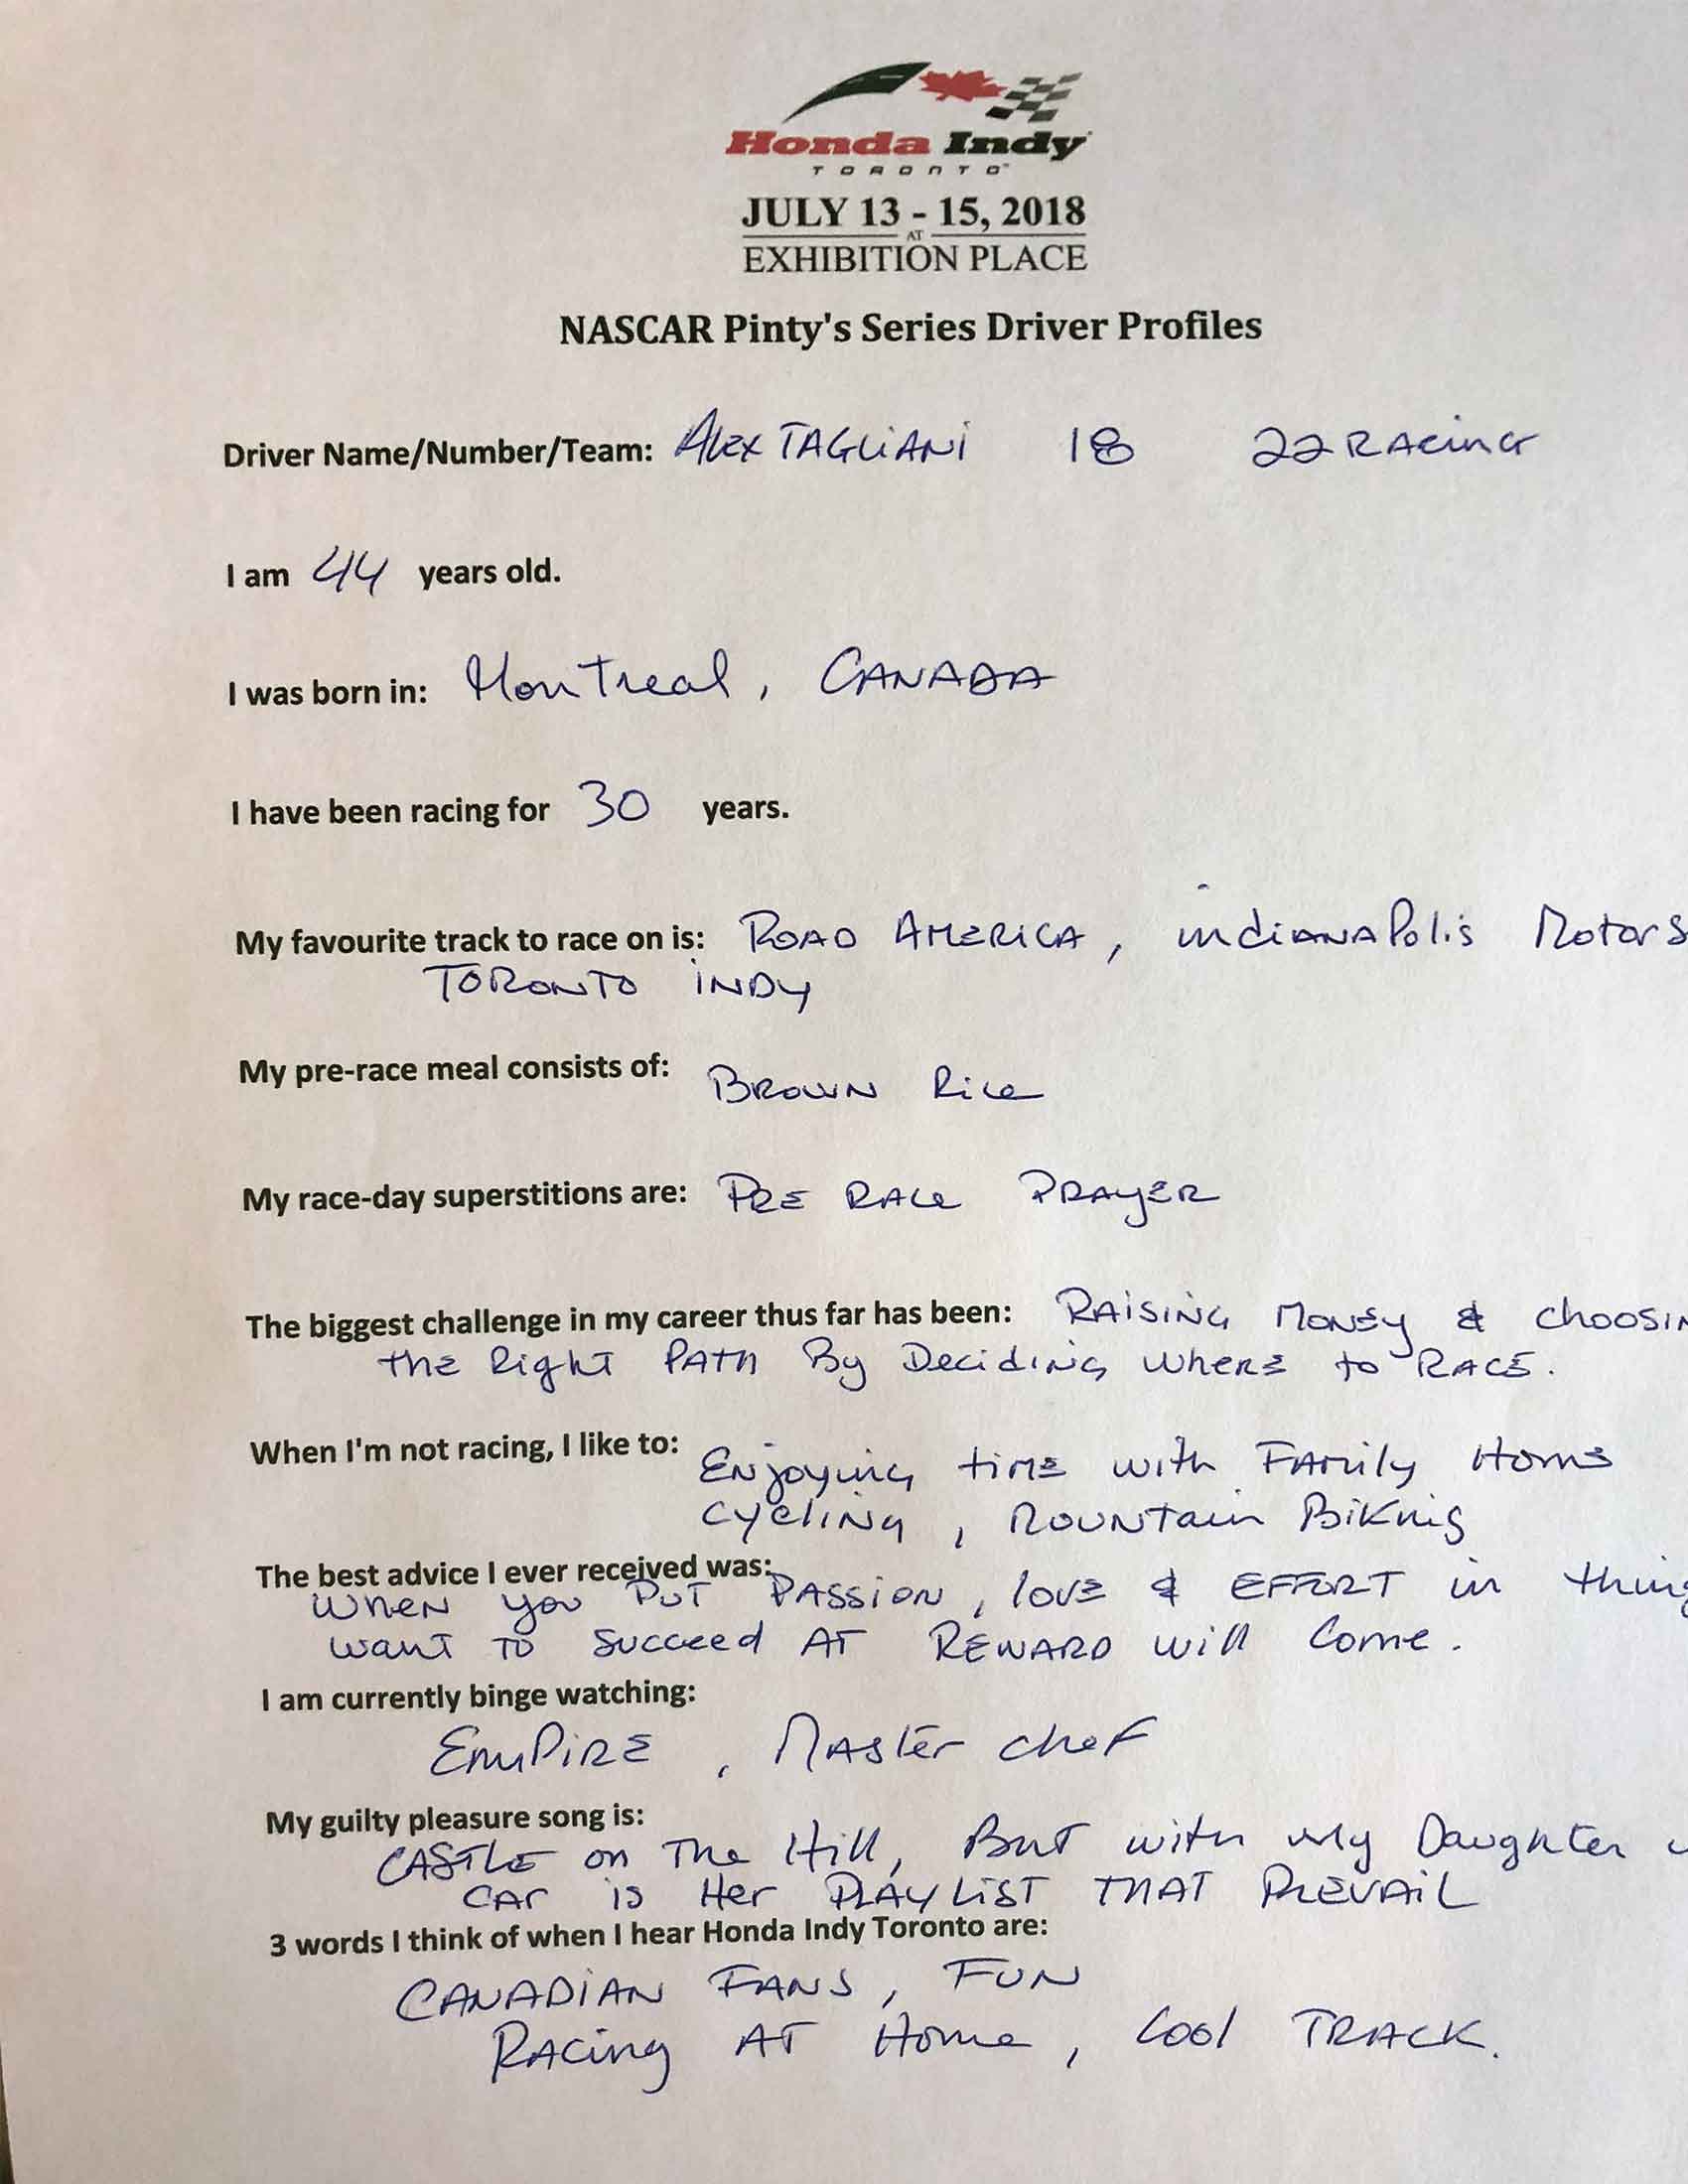 Honda Indy
TORONTO
JULY 13 - 15, 2018
AT
EXHIBITION PLACE
NASCAR Pinty's Series Driver Profiles
Driver Name/Number/Team: ALEX TAGLIANI 18 22 RACING
I am 44 years old.
I was born in: Montreal, CANADA
I have been racing for 30 years.
My favourite track to race on is: ROAD AMERICA, indiANAPolis Motors
TORONTO INDY
My pre-race meal consists of: BROWN Rice
My race-day superstitions are: PRE RACE PRAYER
The biggest challenge in my career thus far has been: RAISING MONEY & choosin
the Right PATH By Deciding where to RACE.
When I'm not racing, I like to: Enjoying time with Family Home
cycling, Mountain Biking
The best advice I ever received was:
When you PUT PASSION, love & EFFORT in thing
want TO succeed AT REWARD will Come.
I am currently binge watching:
EMPIRE, Master chef
My guilty pleasure song is:
CASTLE on The Hill, But with my Daughter
CAR is Her PLAYLIST THAT PREVAIL
3 words I think of when I hear Honda Indy Toronto are:
CANADIAN FANS, FUN
RACING AT Home, Cool TRACK.